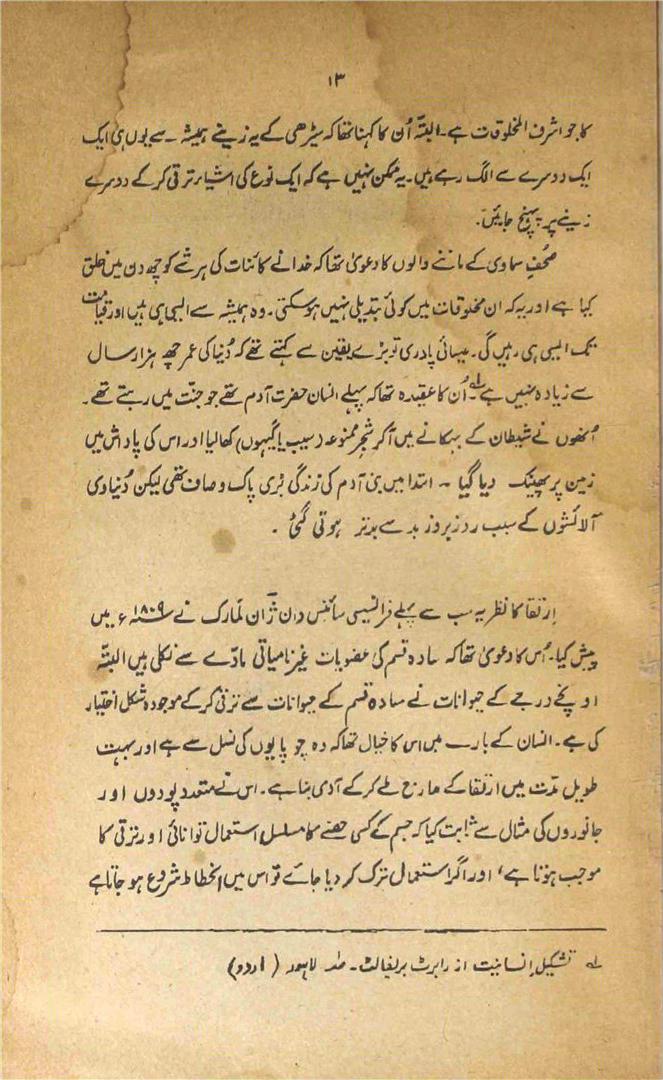 ۱۳
کا جو اشرف المخلوقات ہے۔ البتہ اُن کا کہنا تھا کہ سیڑھی کے یہ زینے ہمیشہ سے یوں ہی ایک
ایک دوسرے سے الگ رہے ہیں۔ یہ ممکن نہیں ہے کہ ایک نوع کی اشیاء ترقی کر کے دوسرے
زینے پر پہنچ جائیں۔
صحفِ سماوی کے ماننے والوں کا دعویٰ تھا کہ خدا نے کائنات کی ہر شے کو چھ دن میں خلق
کیا ہے اور یہ کہ ان مخلوقات میں کوئی تبدیلی نہیں ہو سکتی۔ وہ ہمیشہ سے ایسی ہی ہیں اور قیامت
تک ایسی ہی رہیں گی۔ عیسائی پادری تو بڑے یقین سے کہتے تھے کہ دُنیا کی عمر چھ ہزار سال
سے زیادہ نہیں ہے۔ ؎۱ اُن کا عقیدہ تھا کہ پہلے انسان حضرت آدم تھے جو جنّت میں رہتے تھے۔
اُنھوں نے شیطان کے بہکانے میں آکر شجرِ ممنوعہ (سیب یا گیہوں) کھا لیا اور اس کی پاداش میں
زمین پر پھینک دیا گیا۔ ابتدا میں بنی آدم کی زندگی بڑی پاک و صاف تھی لیکن دُنیاوی
آلائشوں کے سبب روز بروز بد سے بدتر ہوتی گئی۔
اِرتقا کا نظریہ سب سے پہلے فرانسیسی سائنس دان ژان لَمارک نے ۱۸۰۹ء میں
پیش کیا۔ اُس کا دعویٰ تھا کہ سادہ قسم کی عضویات غیر نامیاتی مادّے سے نکلی ہیں البتّہ
اونچے درجے کے حیوانات نے سادہ قسم کے حیوانات سے ترقی کر کے موجودہ شکل اختیار
کی ہے۔ انسان کے بارے میں اس کا خیال تھا کہ وہ چوپایوں کی نسل سے ہے اور بہت
طویل مدّت میں ارتقا کے مدارج طے کر کے آدمی بنا ہے۔ اس نے متعدد پودوں اور
جانوروں کی مثال سے ثابت کیا کہ جسم کے کسی حصّے کا مسلسل استعمال توانائی اور ترقی کا
موجب ہوتا ہے، اور اگر استعمال ترک کر دیا جائے تو اس میں انحطاط شروع ہو جاتا ہے
؎۱ تشکیلِ اِنسانیت از رابرٹ بریفالٹ۔ لاہور (اردو)